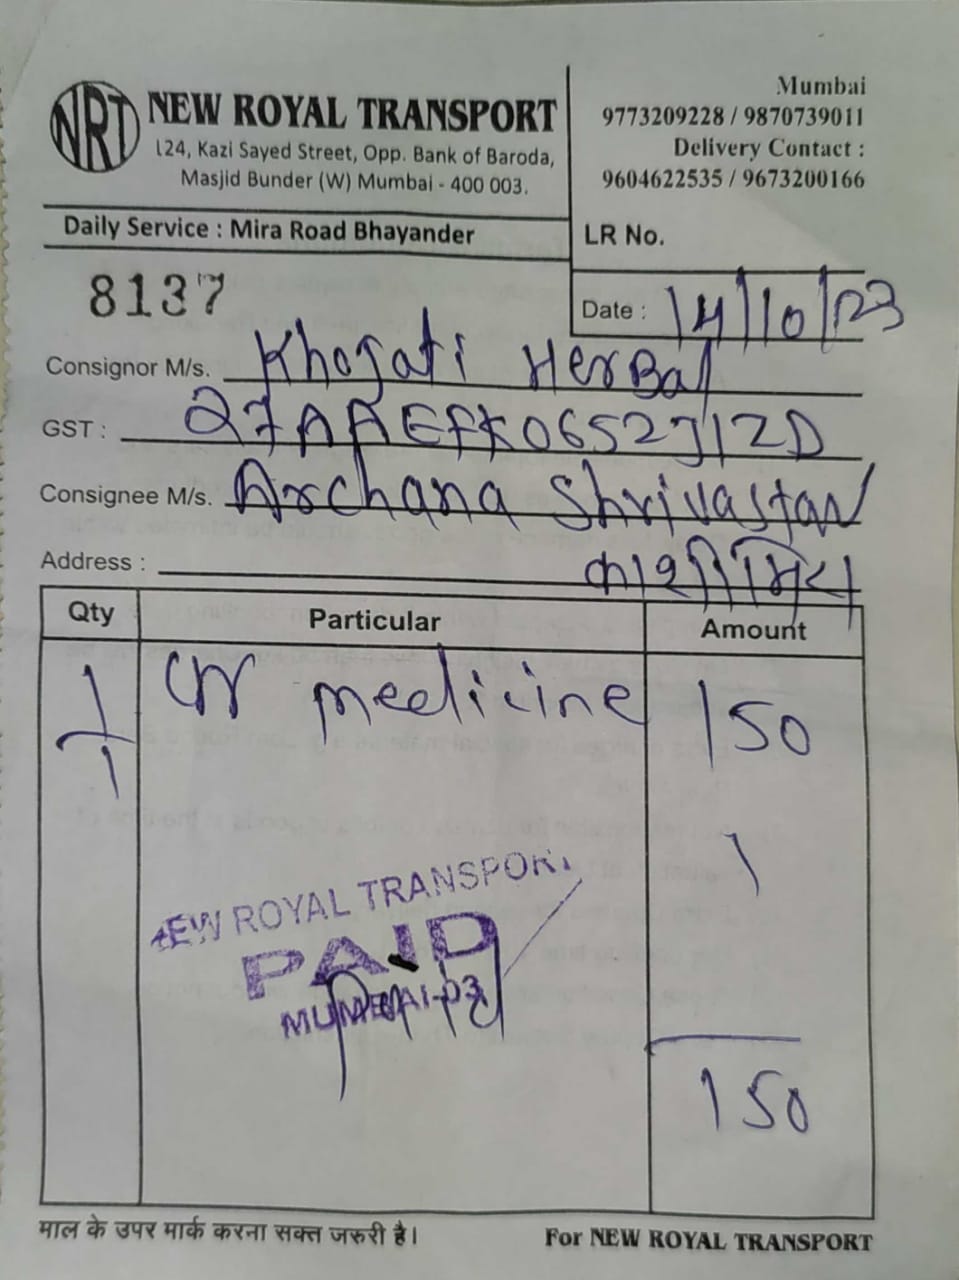 NRT
NEW ROYAL TRANSPORT
124, Kazi Sayed Street, Opp. Bank of Baroda,
Masjid Bunder (W) Mumbai - 400 003.
Mumbai
9773209228 / 9870739011
Delivery Contact :
9604622535 / 9673200166
Daily Service : Mira Road Bhayander
LR No.
8137
Date : 14/10/23
Consignor M/s. Khojati Herbal
GST : 27AAEFK0652J1ZD
Consignee M/s. Archana Shrivastav
Address :
Qty Particular Amount
1 medicine 150
NEW ROYAL TRANSPORT
PAID
MUMBAI-03
150
माल के उपर मार्क करना सक्त जरुरी है।
For NEW ROYAL TRANSPORT